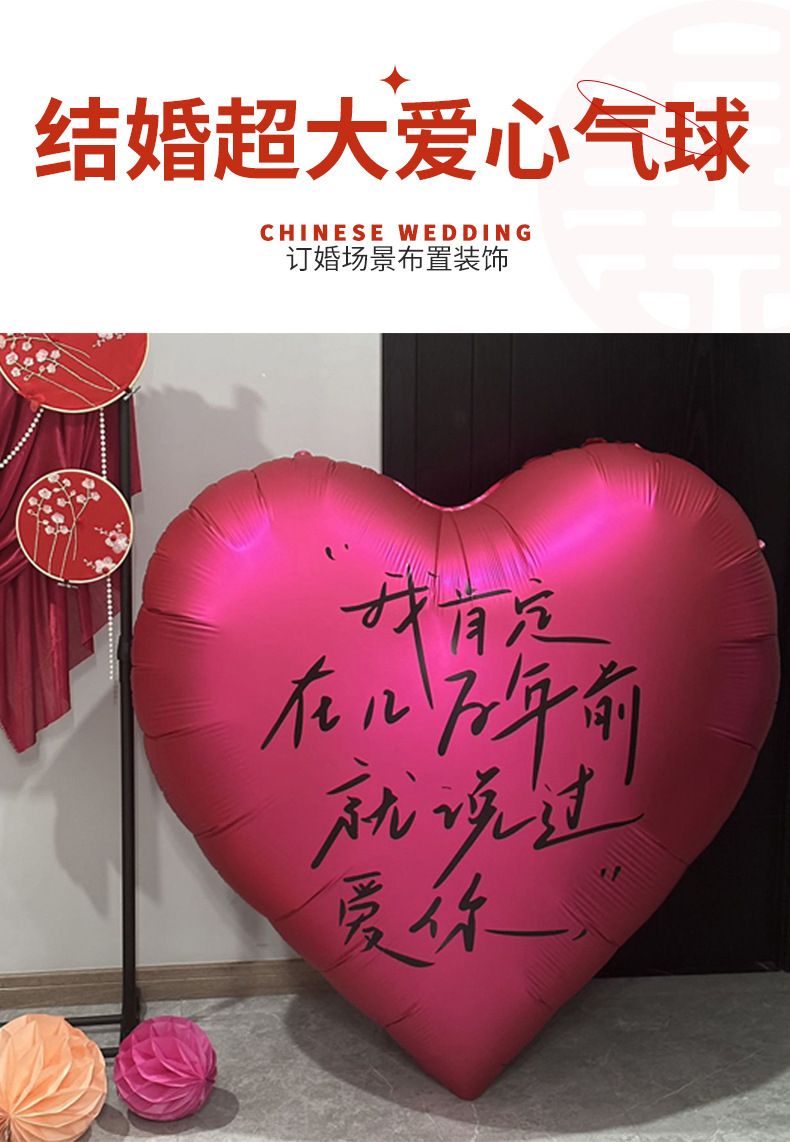 结婚超大爱心气球
CHINESE WEDDING
订婚场景布置装饰
"我肯定
在几万年前
就说过
爱你"